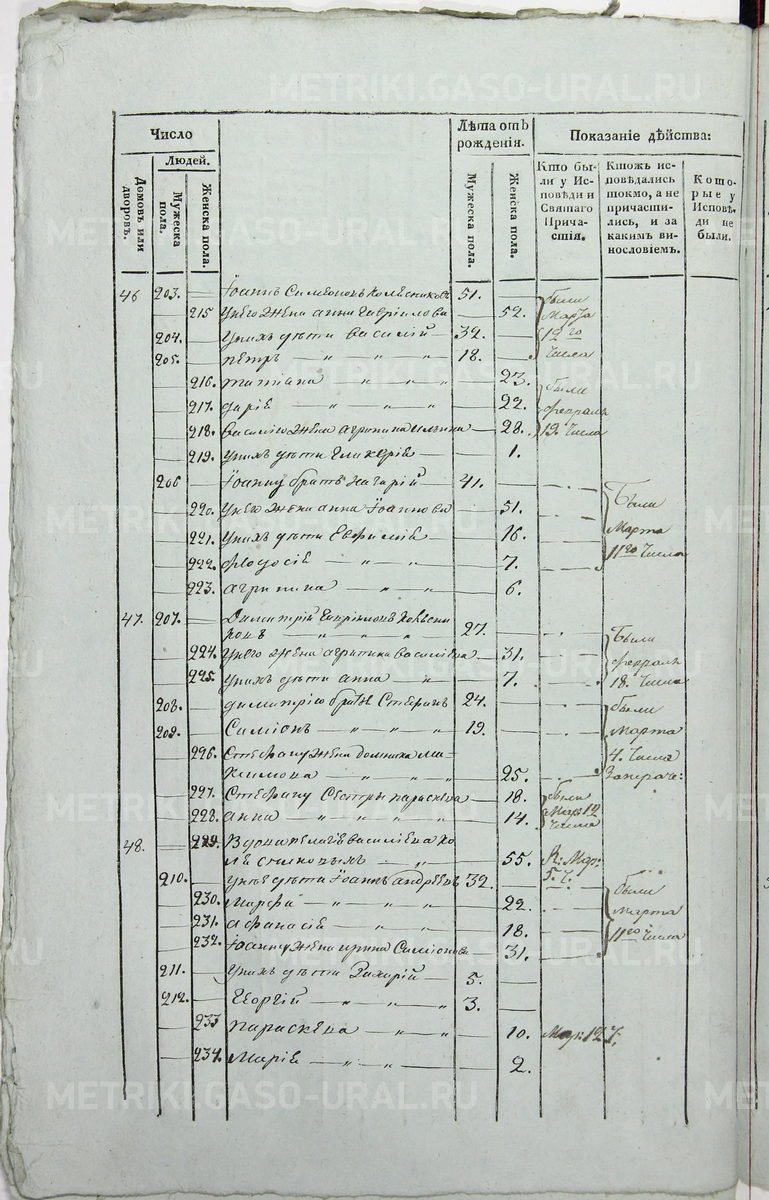 METRIKI.GASO-URAL.RU
Число
Лѣта отъ рожденія.
Показаніе дѣйства:
Людей.
Домовъ или дворовъ.
Мужеска пола.
Женска пола.
Мужеска пола.
Женска пола.
Кто были у Исповѣди и Святаго Причастія.
Ктожъ исповѣдались токмо, а не причастились, и за какимъ винословіемъ.
Которые у Исповѣди не были.
46 203. Іоаннъ Симеоновъ Колѣсниковъ 51. были
215 Унего жена анна Гавріилова 52. Марта
204. Унихъ дѣти василій 32. 12го
205. пётръ 18. числа
216. татіана 23. были
217. даріѣ 22. февраля
218. василію жена агрипина ильина 28. 19. числа
219. Унихъ дѣти гликеріѣ 1.
206 Іоанну братъ 41.
220. Унего жена анна Іоаннова 51. Были
221. Унихъ дѣти Евфиміѣ 16. Марта
222. феодосіѣ 7. 11го числа
223. агрипина 6.
47. 207. Димитрій Гавріиловъ Колѣсни
ковъ 27. Были
224. Унего жена агрипина василіева 31. февраля
225. Унихъ дѣти анна 7. 18. числа
208. димитрію братъ Стефанъ 24. были
209. Симіонъ 19. Марта
226. Стефану жена домника ма- 4. числа
ximова 25.
227. Стефану Сестры параскева 18. были
228. анна 14. Мар: 12 числа
48. 229. Вдова пелагіѣ василіева Ко
лѣсниковыхъ 55. Мар: 5. ч.
210. Унеѣ дѣти Іоаннъ андрѣевъ 32. были
230. Марфа 22. марта
231. афанасіѣ 18. 11го числа
232. Іоанну жена ирина Симіонова 31.
211. Унихъ дѣти Захарій 5.
212. Георгій 3.
233 параскева 10. Мар: 12 ч:
234. Маріѣ 2.